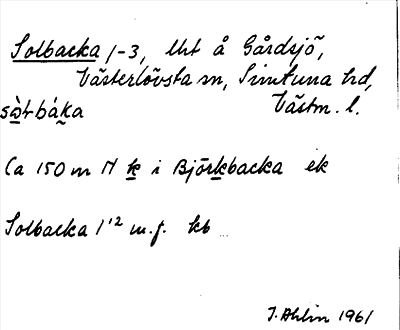 Solbacka 1-3, lht å Gårdsjö,
Västerlövsta sn, Simtuna hd,
Västm. l.
Ca 150 m N k i Björkbacka ek
Solbacka 1¹² m.f. kb
J. Ahlin 1961